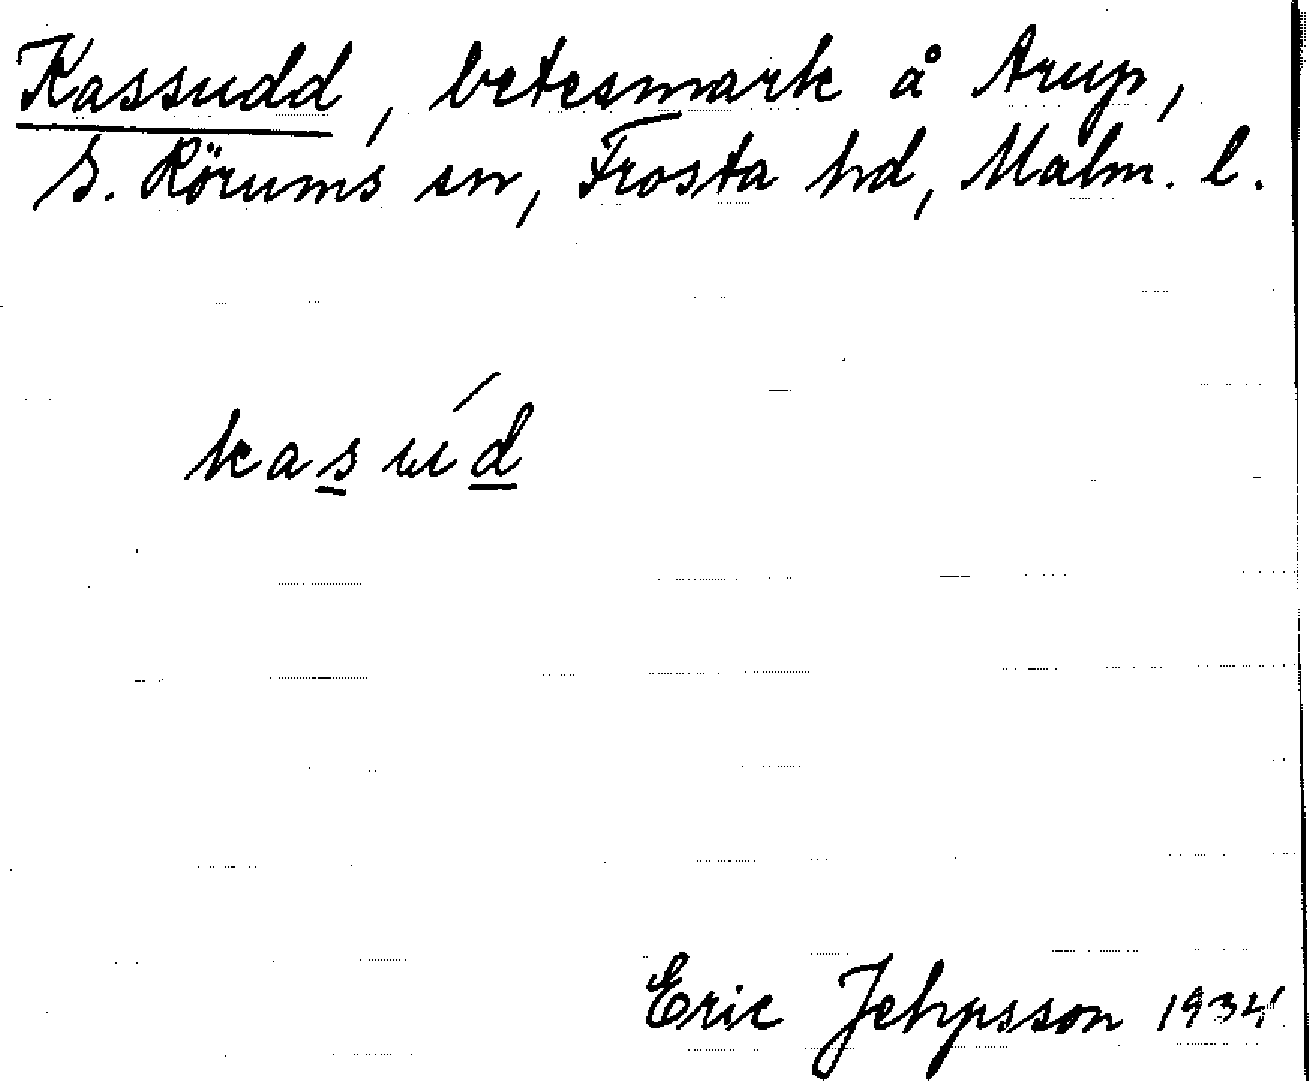 Kassudd, betesmark å Arup,
S. Rörums sn, Frosta hd, Malm. l.
kasúd
Eric Jehpsson 1934